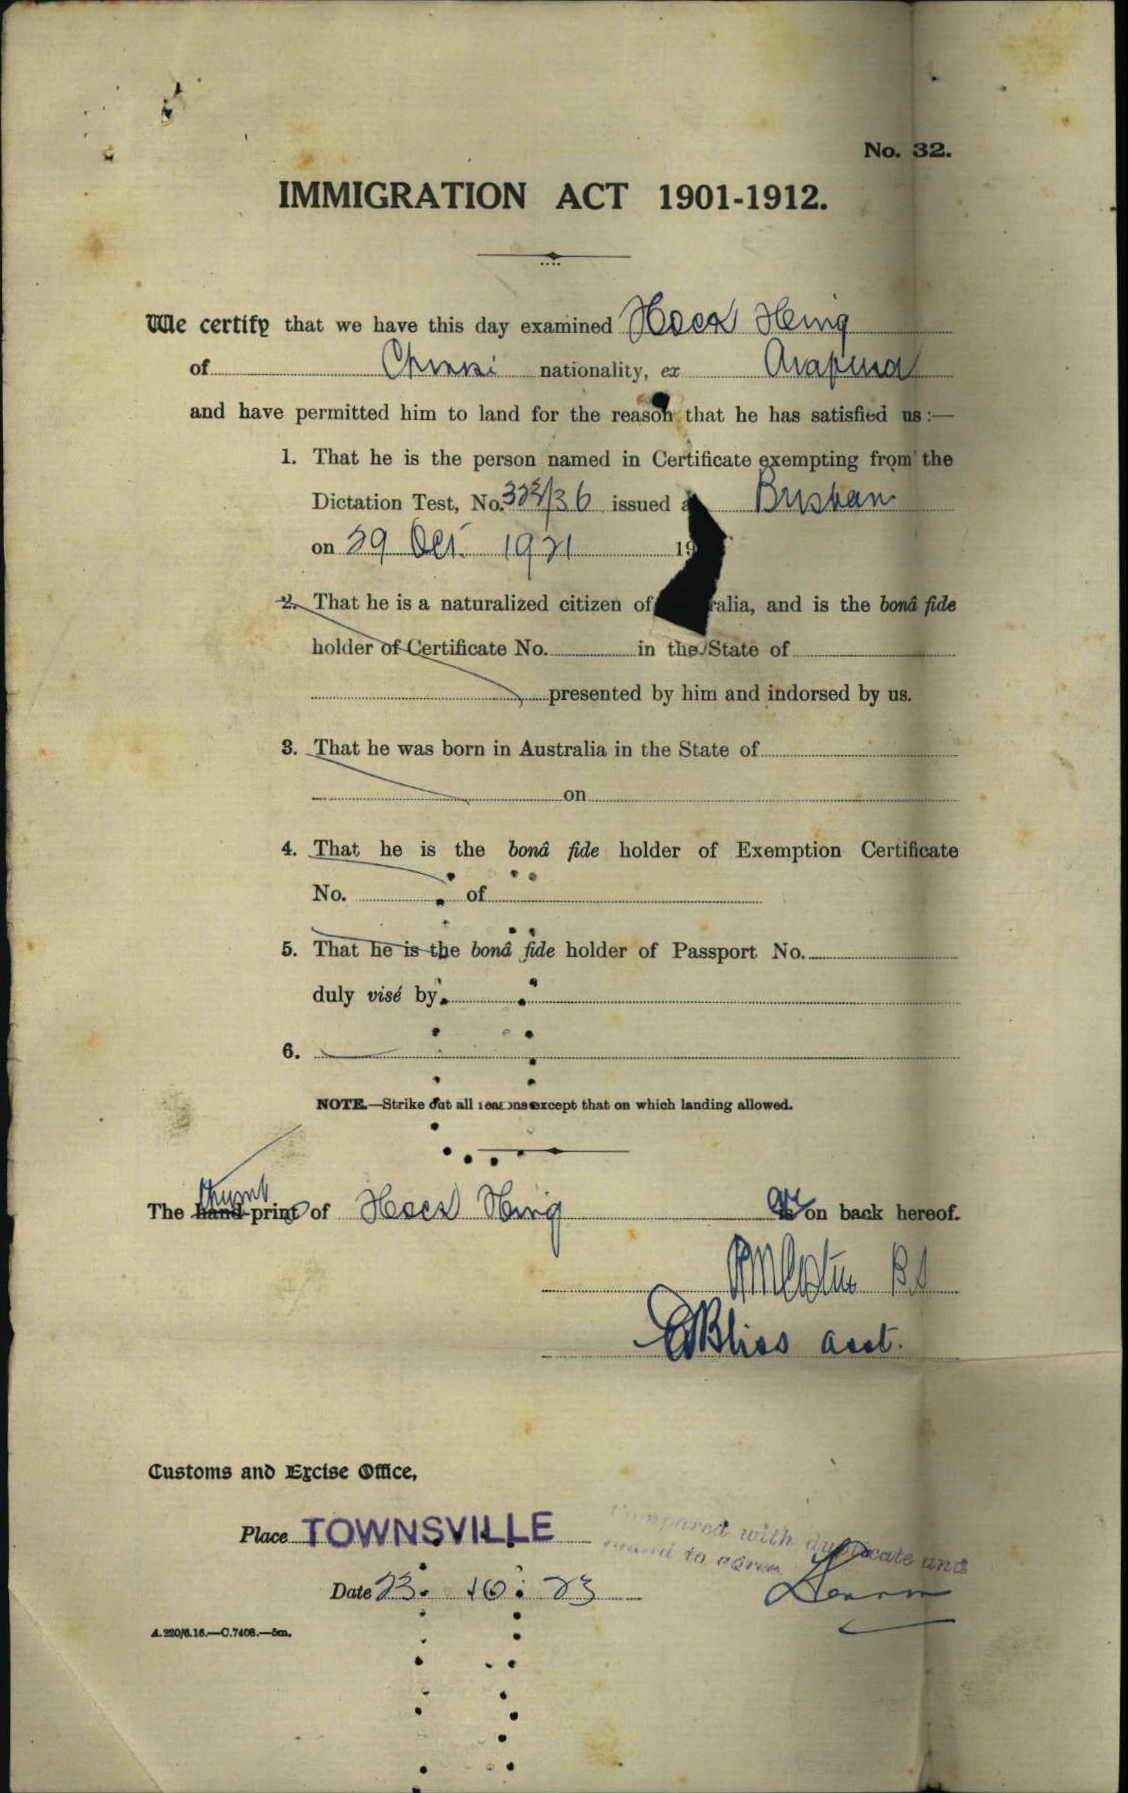 No. 32.
IMMIGRATION ACT 1901-1912.
We certify that we have this day examined Hock Hing
of Chinese nationality, ex Arafura
and have permitted him to land for the reason that he has satisfied us:—
1. That he is the person named in Certificate exempting from the
Dictation Test, No. 323/36 issued a Brisban
on 29 Oct. 1921 19
2. That he is a naturalized citizen of ralia, and is the bonâ fide
holder of Certificate No. in the State of
presented by him and indorsed by us.
3. That he was born in Australia in the State of
on
4. That he is the bonâ fide holder of Exemption Certificate
No. of
5. That he is the bonâ fide holder of Passport No.
duly visé by
6.
NOTE.—Strike out all reasons except that on which landing allowed.
thumb
The hand-print of Hock Hing is on back hereof.
B.S
Bliss asst.
Customs and Excise Office,
Place TOWNSVILLE
Compared with duplicate and
found to agree
Date 23. 10. 23
A.220/6.16.—C.7408.—5m.